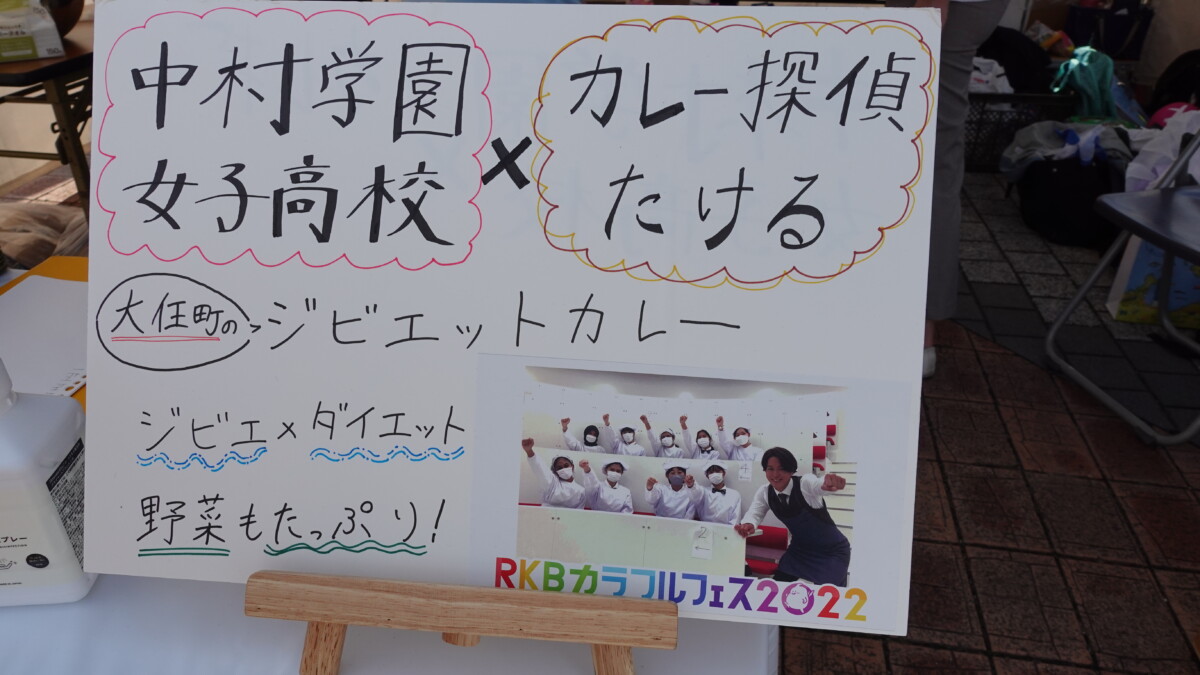 中村学園
女子高校
×
カレー探偵
たける
大任町の
ジビエットカレー
ジビエ×ダイエット
野菜もたっぷり!
4
2
RKBカラフルフェス2022
スプレー